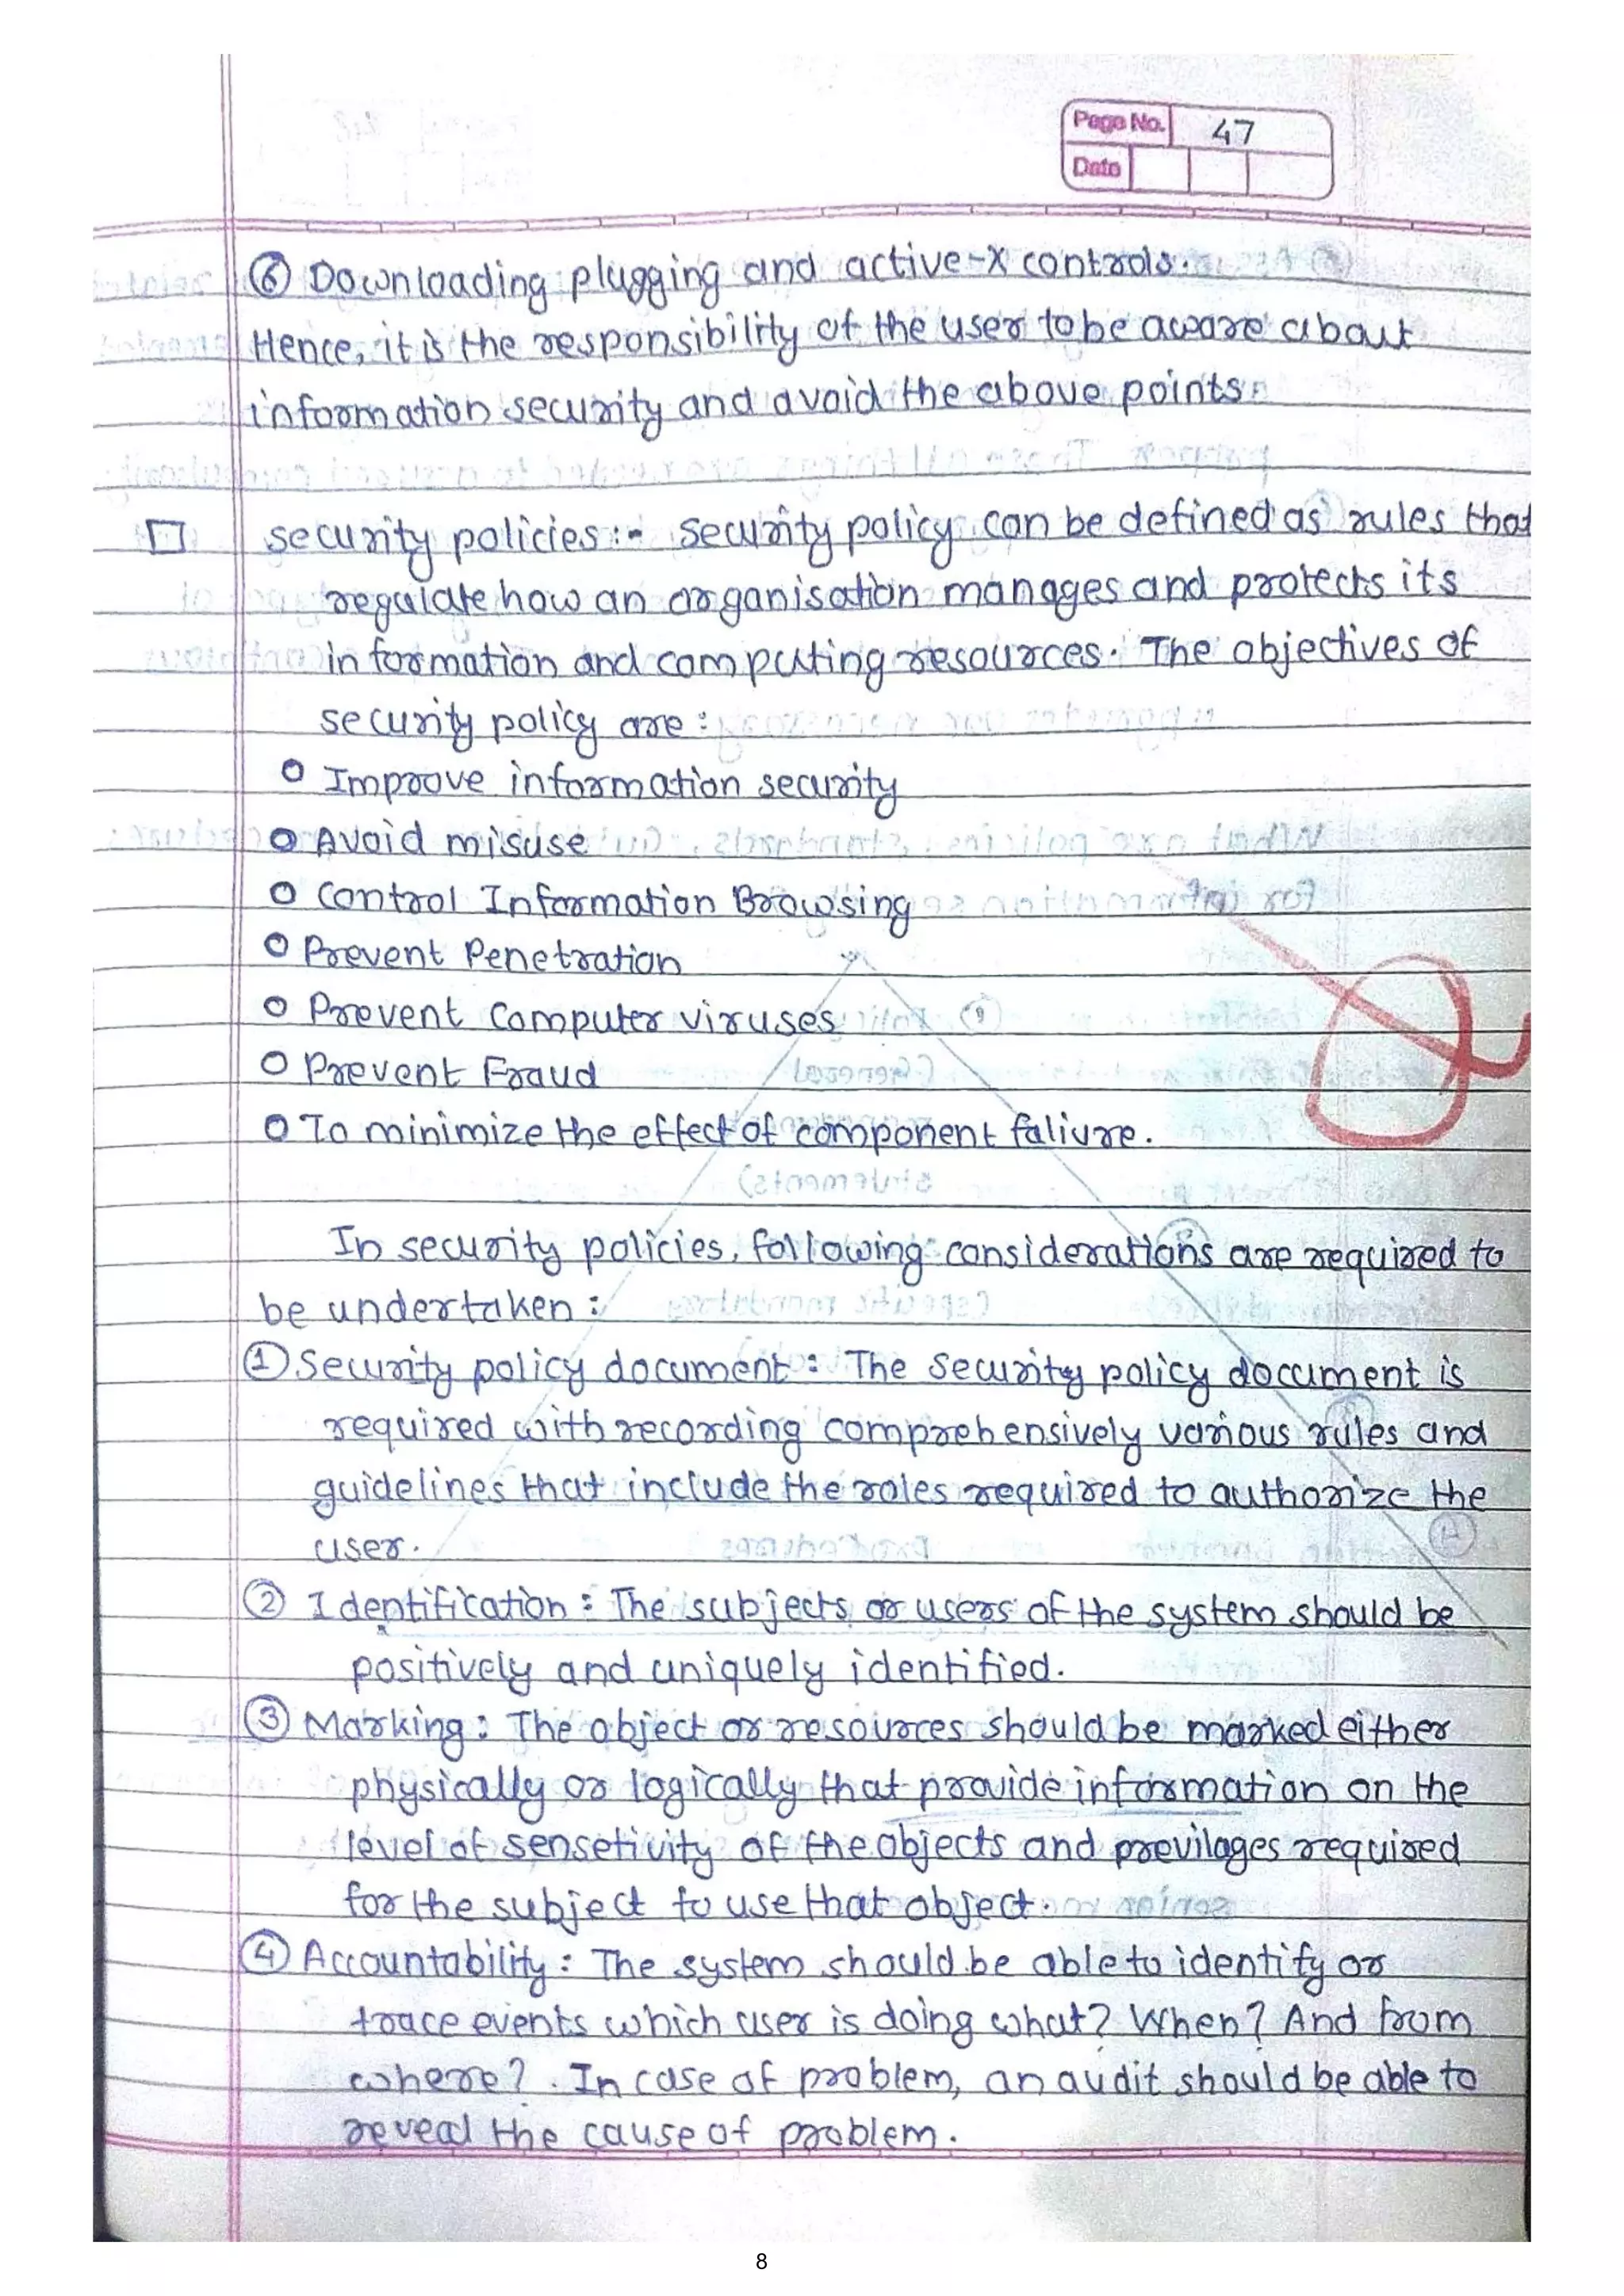 Page No. 47
Date
⑥ Downloading plugging and active-X controls.
Hence, it is the responsibility of the user to be aware about
information security and avoid the above points.
□ security policies :- Security policy can be defined as rules that
regulate how an organisation manages and protects its
information and computing resources. The objectives of
security policy are :
o Improove information security
o Avoid misuse
o Control Information Browsing
o Prevent Penetration
o Prevent Computer viruses
o Prevent Fraud
o To minimize the effect of component faliure.
In security policies, following considerations are required to
be undertaken :
① Security policy document : The Security policy document is
required with recording comprehensively various rules and
guidelines that include the roles required to authorize the
user.
② Identification : The subjects or users of the system should be
positively and uniquely identified.
③ Marking : The object or resources should be marked either
physically or logically that provide information on the
level of sensetivity of the objects and previlages required
for the subject to use that object.
④ Accountability : The system should be able to identify or
trace events which user is doing what? When? And from
where? . In case of problem, an audit should be able to
reveal the cause of problem.
8